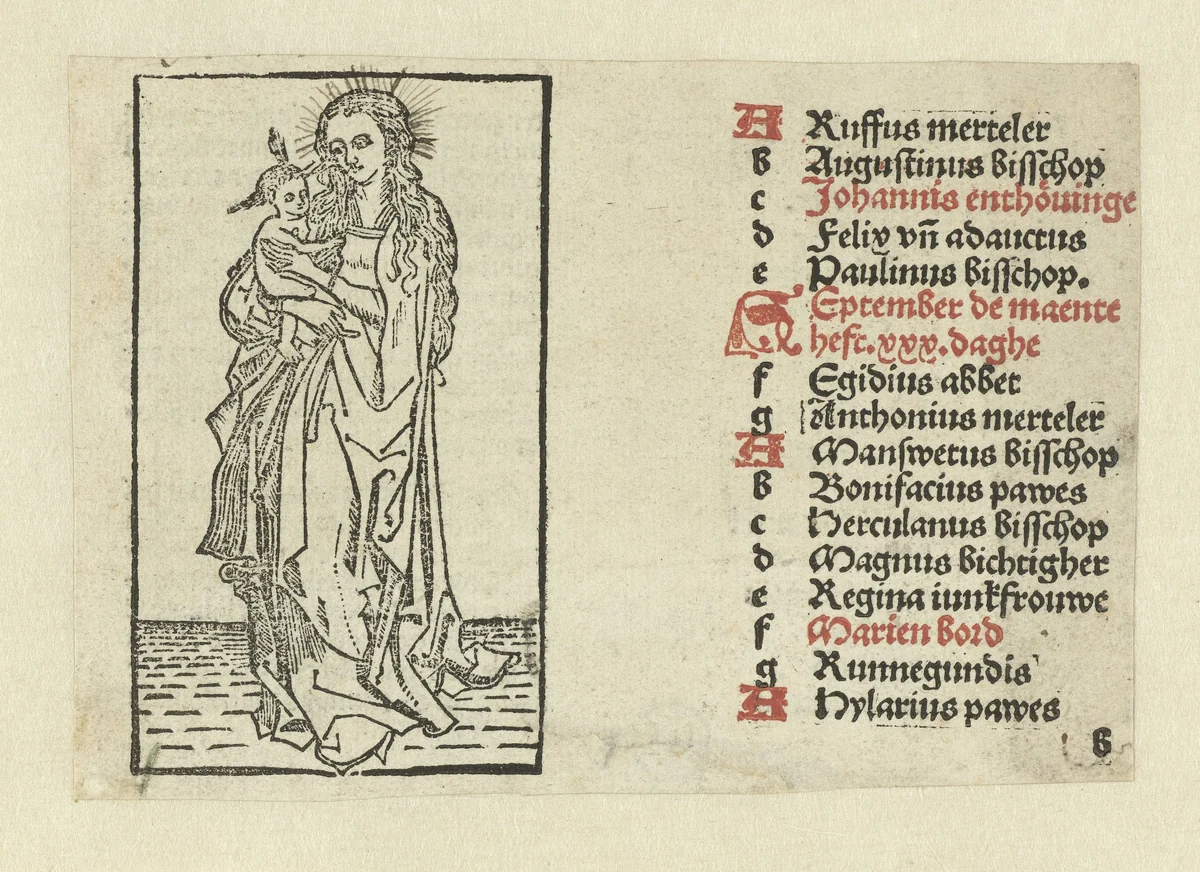 A Ruffus merteler
b Augustinus bisschop
c Johannis enthöuinge
d Felix vn̄ adauctus
e Paulinus bisschop.
SEptember de maente
heft.xxx.daghe
f Egidius abbet
g Anthonius merteler
A Manswetus bisschop
b Bonifacius pawes
c Herculanus bisschop
d Magnus bichtigher
e Regina iunkfrouwe
f Marien bord
g Kunnegundis
A Hylarius pawes
b